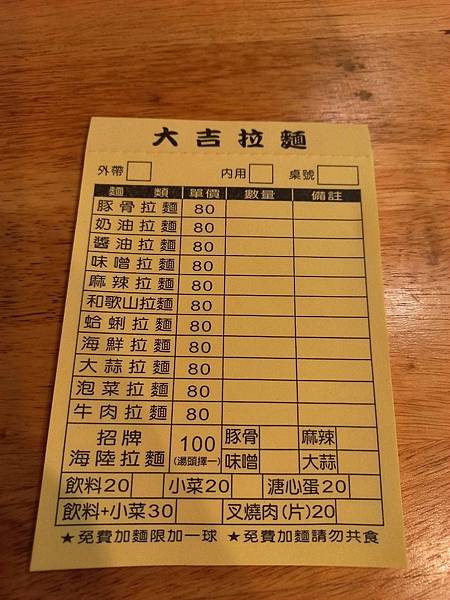 大吉拉麵
外帶 内用 桌號
麵類 單價 數量 備註
豚骨拉麵 80
奶油拉麵 80
醬油拉麵 80
味噌拉麵 80
麻辣拉麵 80
和歌山拉麵 80
蛤蜊拉麵 80
海鮮拉麵 80
大蒜拉麵 80
泡菜拉麵 80
牛肉拉麵 80
招牌海陸拉麵 100 (湯頭擇一) 豚骨 麻辣
味噌 大蒜
飲料20 小菜20 溏心蛋20
飲料+小菜30 叉燒肉(片)20
★免費加麵限加一球 ★免費加麵請勿共食